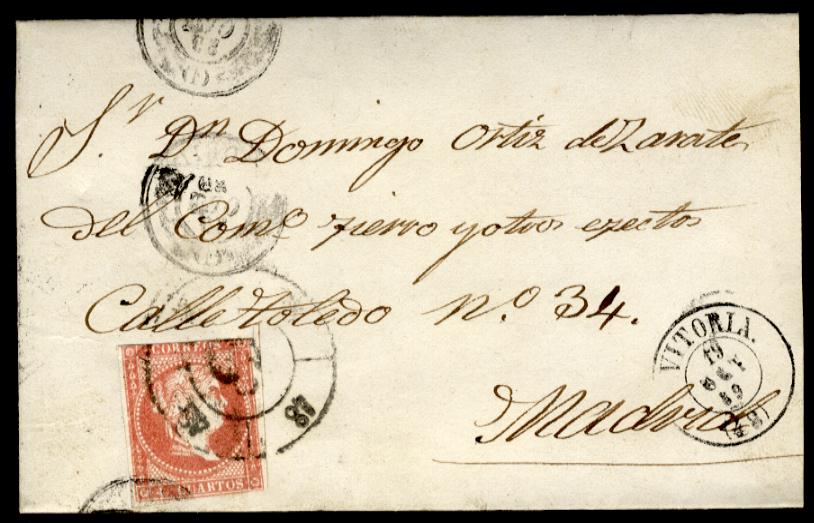 S.r Dn Domingo Ortiz de Zarate
del Com.o fierro y otros efectos
Calle toledo N.o 34.
Madrid
VITORIA.
19
59
CORREOS
CUARTOS
(1)